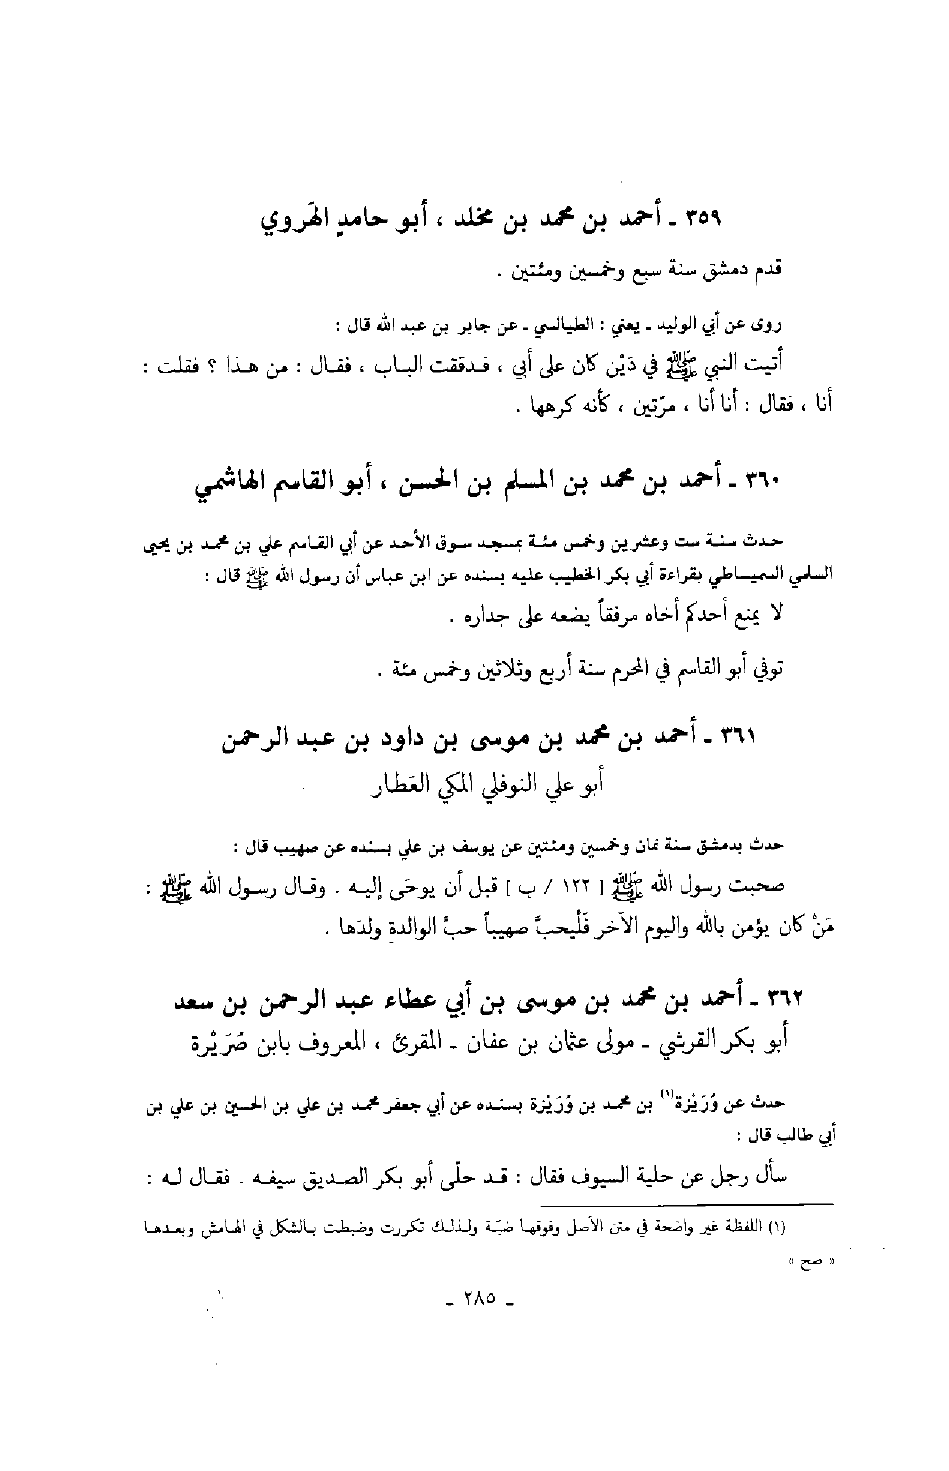 ٣٥٩ - أحمد بن محمد بن مخلد ، أبو حامدٍ الهَروي
قدم دمشق سنة سبع وخمسين ومئتين .
روى عن أبي الوليد - يعني : الطيالسي - عن جابر بن عبد الله قال :
أتيت النبي ﷺ في دَيْن كان على أبي ، فدققت الباب ، فقال : من هذا ؟ فقلت :
أنا ، فقال : أنا أنا ، مرّتين ، كأنه كرهها .
٣٦٠ - أحمد بن محمد بن المسلم بن الحسن ، أبو القاسم الهاشمي
حدث سنة ست وعشرين وخمس مئة بمسجد سوق الأحد عن أبي القاسم علي بن محمد بن يحيى
السلمي السميساطي بقراءة أبي بكر الخطيب عليه بسنده عن ابن عباس أن رسول الله ﷺ قال :
لا يمنع أحدكم أخاه مرفقاً يضعه على جداره .
توفي أبو القاسم في المحرم سنة أربع وثلاثين وخمس مئة .
٣٦١ - أحمد بن محمد بن موسى بن داود بن عبد الرحمن
أبو علي النوفلي المكي العَطار
حدث بدمشق سنة ثمان وخمسين ومئتين عن يوسف بن علي بسنده عن صهيب قال :
صحبت رسول الله ﷺ [ ١٢٢ / ب ] قبل أن يوحَى إليه . وقال رسول الله ﷺ :
مَنْ كان يؤمن بالله واليوم الآخر فَلْيحبَّ صهيباً حبَّ الوالدةِ ولدَها .
٣٦٢ - أحمد بن محمد بن موسى بن أبي عطاء عبد الرحمن بن سعد
أبو بكر القرشي - مولى عثمان بن عفان - المقرئ ، المعروف بابن صُرَيْرة
حدث عن وُرَيْزة(١) بن محمد بن وُرَيْزة بسنده عن أبي جعفر محمد بن علي بن الحسين بن علي بن
أبي طالب قال :
سأل رجل عن حلية السيوف فقال : قد حلّى أبو بكر الصديق سيفه . فقال له :
(١) اللفظة غير واضحة في متن الأصل وفوقها ضبّة ولذلك تكررت وضبطت بالشكل في الهامش وبعدها
« صح »
- ٢٨٥ -